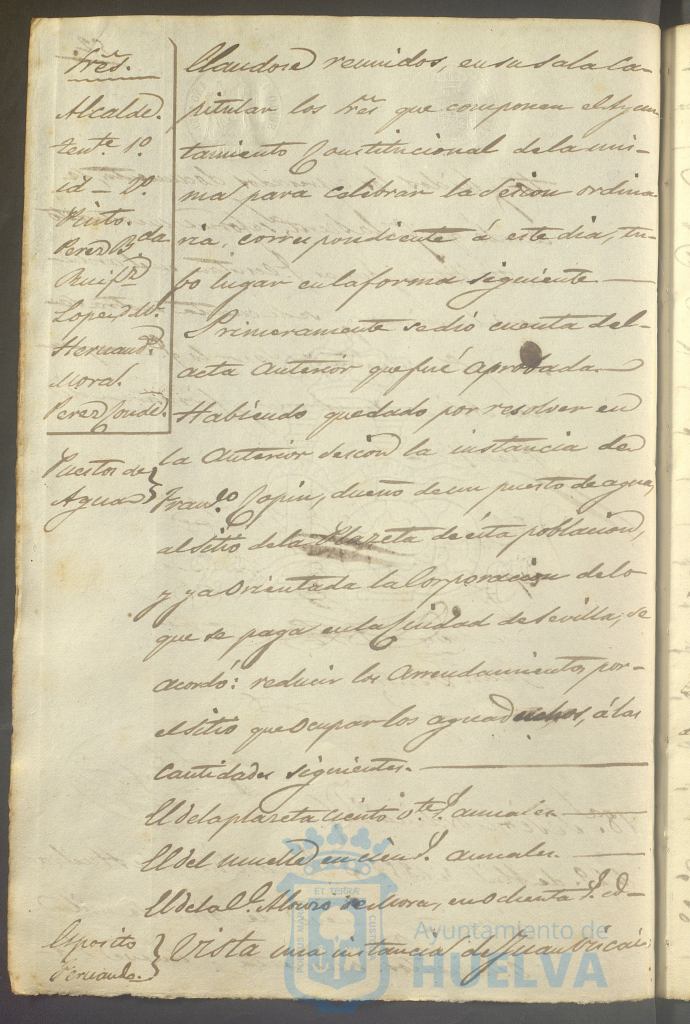 Sres.
Alcalde.
Tente. 1º
id - 2º.
Pinto.
Perez Bda
Ruiz
Lopez
Hernand.
Moral.
Perez Conde.
Handose reunidos, en su sala Ca-
pitular los Sres que componen el Ayun-
tamiento Constitucional de la mis-
ma para celebrar la Sesion ordina-
ria, correspondiente á este dia, tu-
bo lugar en la forma siguiente
Primeramente se dió cuenta del
acta anterior que fué aprobada.
Habiendo quedado por resolver en
Puestos de
Agua
la anterior sesion la instancia de
Franco. Copin, dueño de un puesto de agua,
al sitio de la Plazeta de esta poblacion,
y ya orientada la Corporacion de lo
que se paga en la Ciudad de Sevilla, se
acordó: reducir los arrendamientos por
el sitio que ocupan los aguaduchos, á las
cantidades siguientes.
El de la plazeta ciento anuales.
El del muelle en cien anuales.
El de la Alonso de Mora, en ochenta
Esposito
Fernando.
Vista una instancia de Juan
PORTUS MARIS ET TERRÆ CUSTODIA
Ayuntamiento de
HUELVA